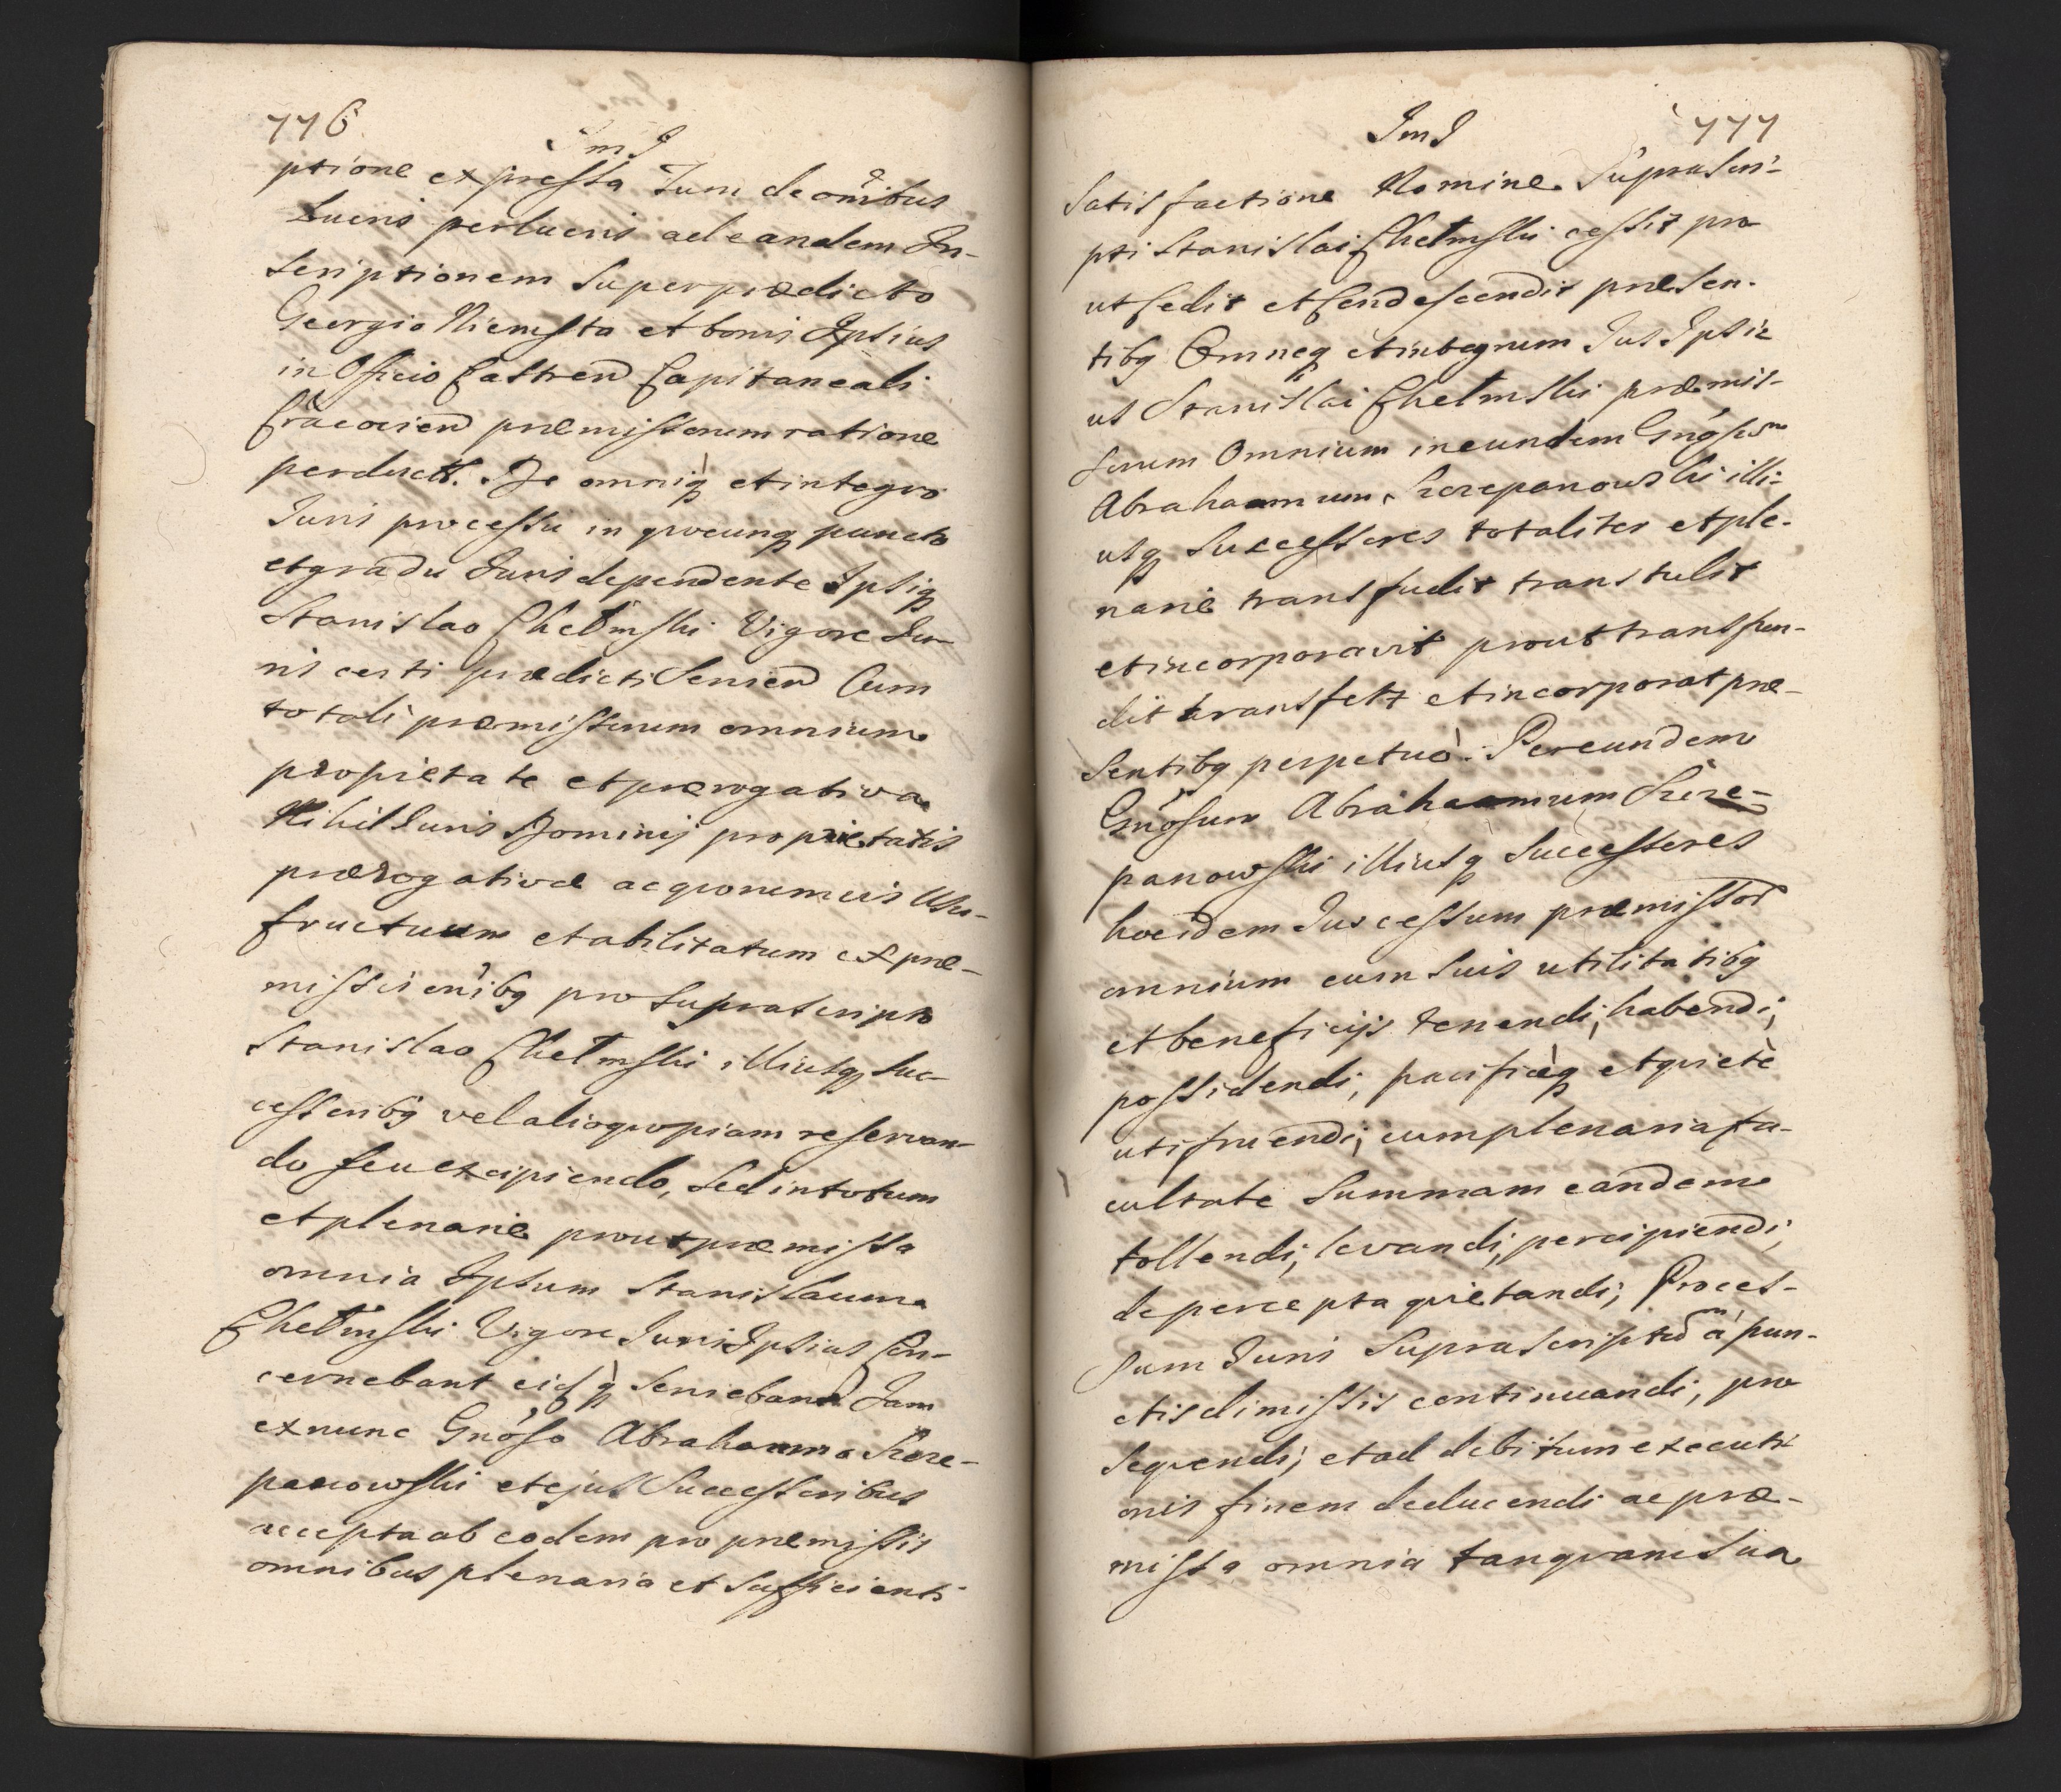 776
ImJ
ptione expressa Tum de om̃ibus
Lucris perlucris ad eandem In-
scriptionem super prædicto
Georgio Niemsta et bonis Ipsius
in Officio Castren̄ Capitaneali
Cracovien̄ præmissorum ratione
perductt. De omniq́ et integro
Juris processu in quocunq puncto
et gradu Juris dependente Ipsiq
Stanislao Chełmski Vigore Ju-
ris certi prædicti servien̄ Cum
totali præmissorum omnium
proprietate et prærogativa
Nihil Juris Dominij proprietatis
prærogativæ ac quorumcuis Usu-
fructuum et abilitatum ex præ-
missis om̃ibg pro suprascripto
Stanislao Chełmski illiusq suc-
cessoribg vel alio quopiam reservan-
do seu excipiendo, sed in totum
et plenarie prout præmissa
omnia Ipsum Stanislaum
Chełmski Vigore Juris Ipsius con-
cernebant eidq́ serviebant Jam
ex nunc Gnõso Abrahamo Szcze-
panowski et ejus Successoribus
accepta ab eodem pro præmissis
omnibus plenaria et sufficienti
ImJ
777
satisfactione Nomine Suprascri-
pti Stanislai Chełmski cessit pro
ut cedit et condescendit præsen-
tibg Omneq et integrum Jus Ipsi
us Stanislai Chełmski præmis-
sorum Omnium in eundem Gnõsum
Abrahaamum Szczepanowski illi-
usq Successores totaliter et ple-
narie transfudit transtulit
et incorporavit prout transfun-
dit transfert et incorporat præ-
sentibg perpetuò. Per eundem
Gnõsum Abrahaamum Szcze-
panowski illiusq Successores
hoc idem Jus cessum præmissor̄
omnium cum suis utilitatibg
et beneficijs tenendi, habendi,
possidendi, pacificèq et quietè
utifruendi, cum plenaria fa-
cultate Summam eandem
tollendi, levandi, percipiendi,
de percepta quietandi, Proces-
sum Juris Suprascriptum à pun-
ctis dimissis continuandi, pro
sequendi, et ad debitum executi
onis finem deducendi ac præ-
missa omnia tanquam sua